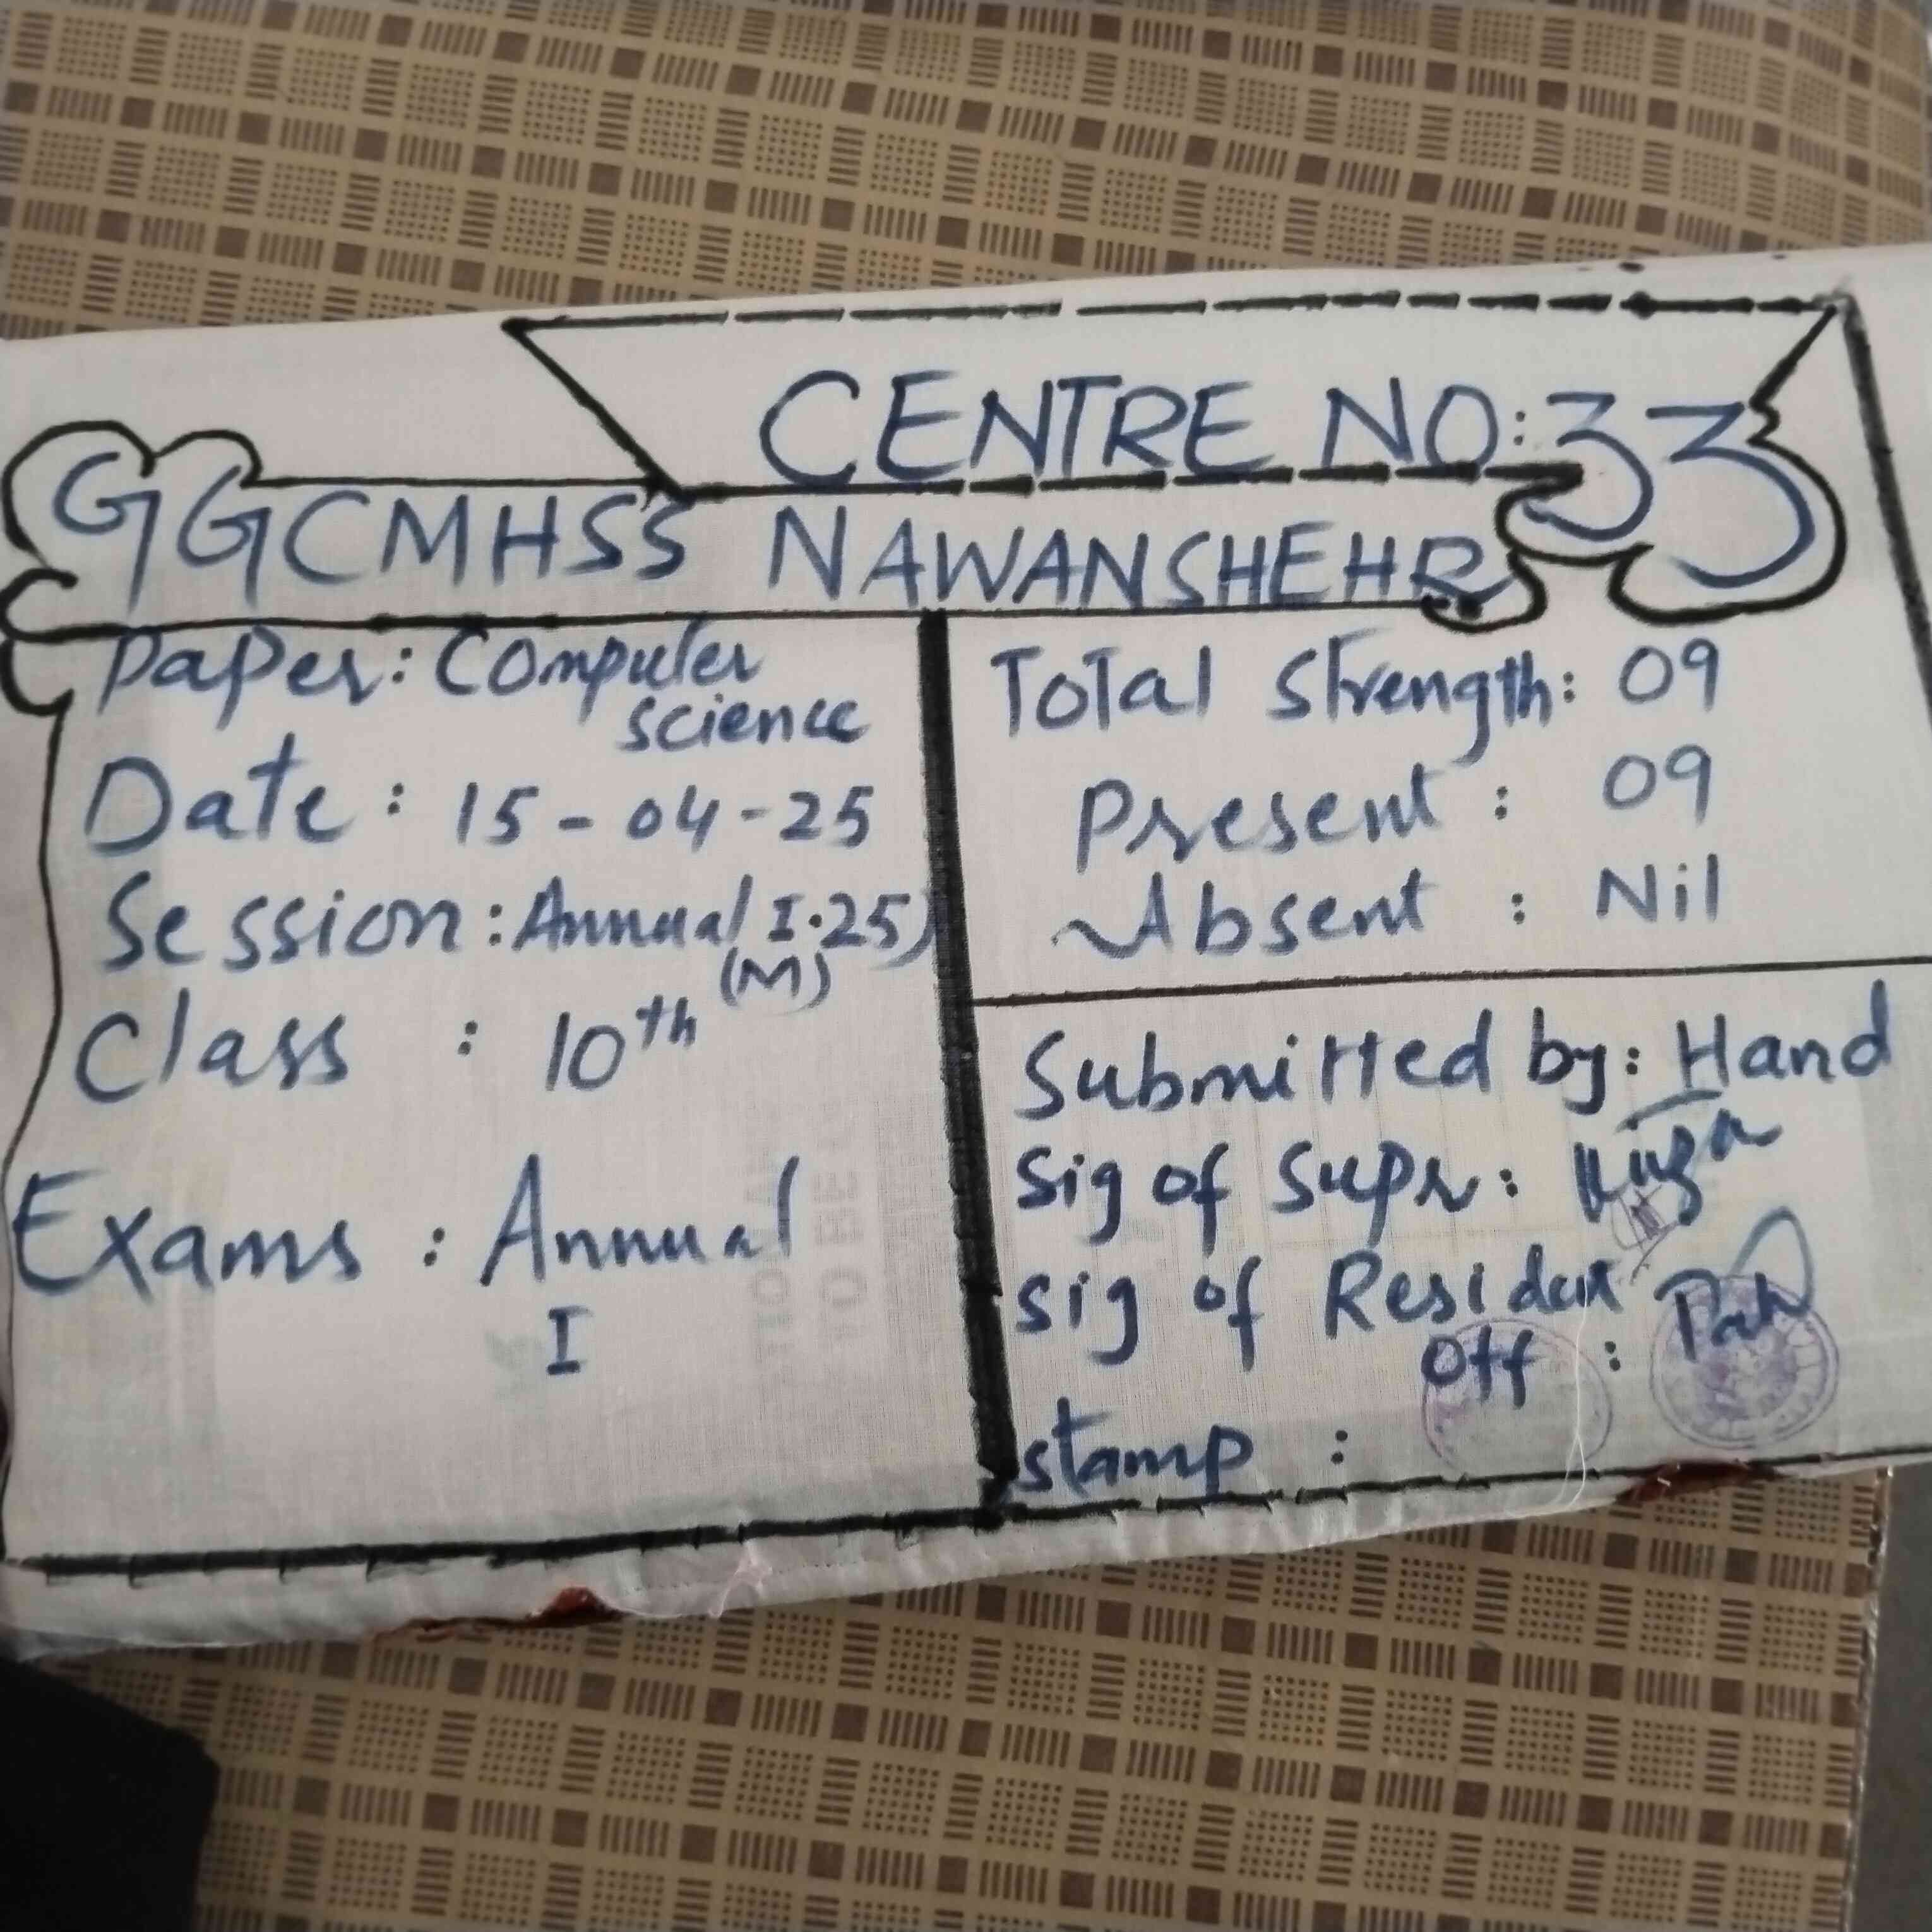 CENTRE NO: 33
GGCMHSS NAWANSHEHR
Paper: Computer
science
Date : 15-04-25
Session : Annual I.25)
(M)
Class : 10th
Exams : Annual
I
Total Strength: 09
Present : 09
Absent : Nil
Submitted by: Hand
Sig of Supr:
Sig of Resident
Off :
stamp :